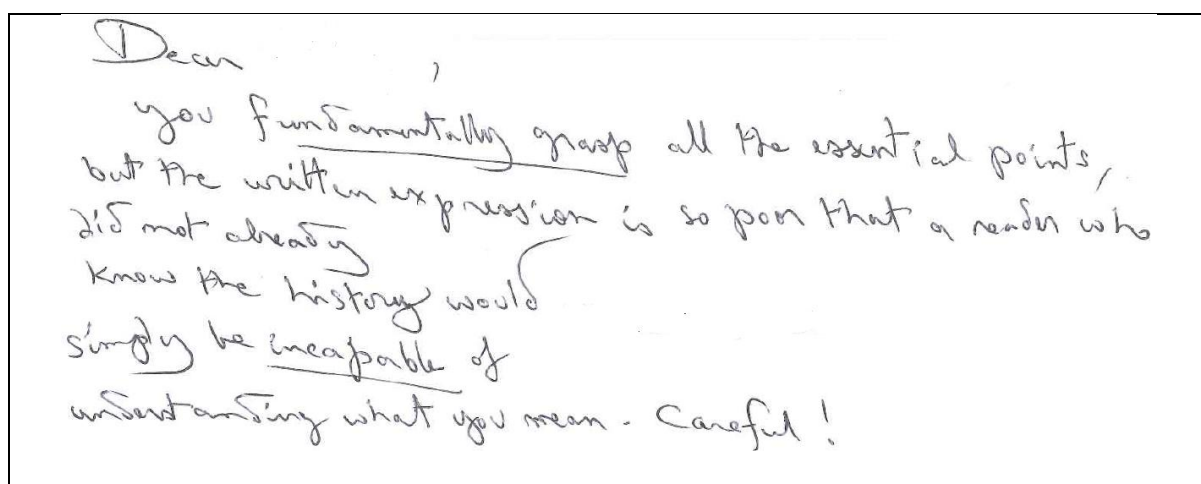 Dear ,
you fundamentally grasp all the essential points,
but the written expression is so poor that a reader who
did not already
know the history would
simply be incapable of
understanding what you mean. Careful!